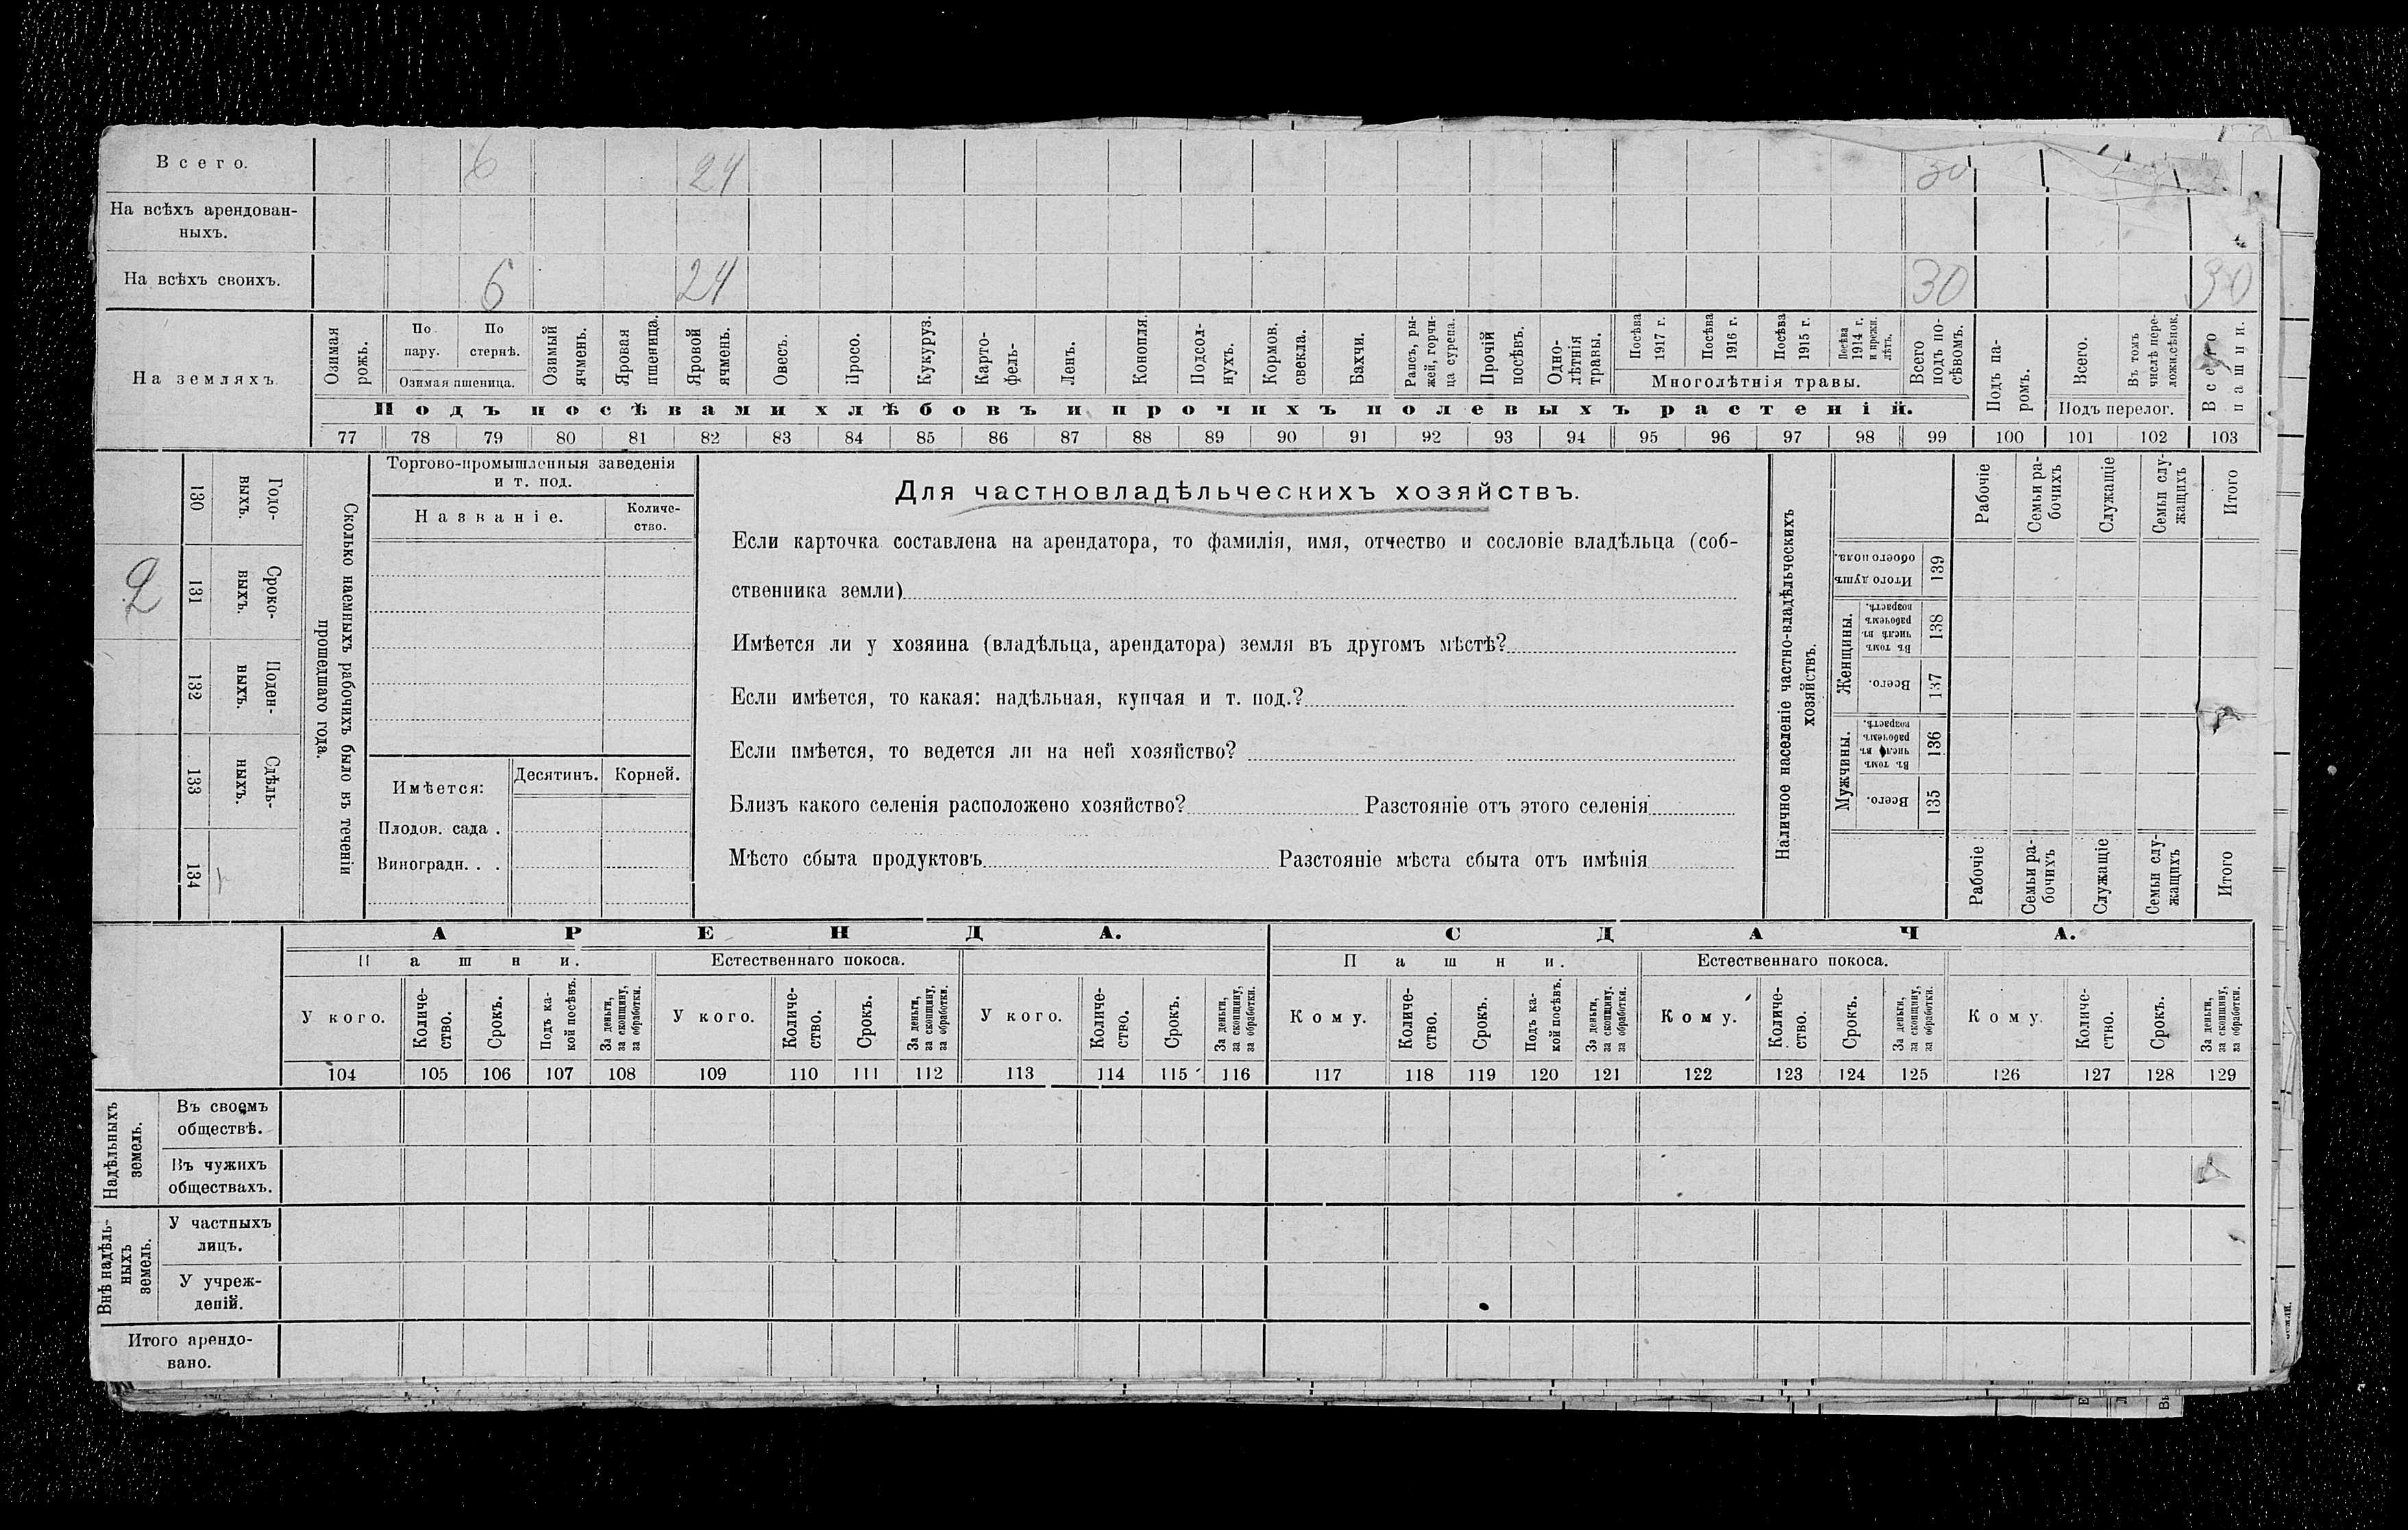 Всего. 6 24 30
На всѣхъ арендован-
ныхъ.
На всѣхъ своихъ. 6 24 30 30
На земляхъ.
Озимая рожь.
По пару.
По стернѣ.
Озимая пшеница.
Озимый ячмень.
Яровая пшеница.
Яровой ячмень.
Овесъ.
Просо.
Кукуруз.
Карто-
фель-
Ленъ.
Конопля.
Подсол-
нухъ.
Кормов.
свекла.
Бахчи.
Рапсъ, ры-
жей, горчи-
ца сурепа.
Прочій
посѣвъ.
Одно-
лѣтнія
травы.
Посѣва
1917 г.
Посѣва
1916 г.
Посѣва
1915 г.
Посѣва
1914 г.
и прежн.
лѣтъ.
Многолѣтнія травы.
Всего
подъ по-
сѣвомъ.
Подъ па-
ромъ.
Всего.
Въ томъ
числѣ пере-
лож.сѣнок.
Подъ перелог.
Всего
пашни.
Подъ посѣвами хлѣбовъ и прочихъ полевыхъ растеній.
77 78 79 80 81 82 83 84 85 86 87 88 89 90 91 92 93 94 95 96 97 98 99 100 101 102 103
2
130 131 132 133 134
Годо-
выхъ.
Сроко-
выхъ.
Поден-
ныхъ.
Сдѣль-
ныхъ.
Сколько наемныхъ рабочихъ было въ теченіи
прошедшаго года.
Торгово-промышленныя заведенія
и т. под.
Названіе.
Количе-
ство.
Имѣется:
Десятинъ. Корней.
Плодов. сада .
Виноградн. . .
Для частновладѣльческихъ хозяйствъ.
Если карточка составлена на арендатора, то фамилія, имя, отчество и сословіе владѣльца (соб-
ственника земли)
Имѣется ли у хозяина (владѣльца, арендатора) земля въ другомъ мѣстѣ?
Если имѣется, то какая: надѣльная, купчая и т. под.?
Если имѣется, то ведется ли на ней хозяйство?
Близъ какого селенія расположено хозяйство? Разстояніе отъ этого селенія
Мѣсто сбыта продуктовъ Разстояніе мѣста сбыта отъ имѣнія
Наличное населеніе частно-владѣльческихъ
хозяйствъ.
Рабочіе
Семьи ра-
бочихъ
Служащіе
Семьи слу-
жащихъ
Итого
Итого душъ
обоего пола.
139
Женщины.
Въ томъ
числѣ въ
рабочемъ
возрастѣ.
138
Всего.
137
Мужчины.
Въ томъ
числѣ въ
рабочемъ
возрастѣ.
136
Всего.
135
Рабочіе
Семьи ра-
бочихъ
Служащіе
Семьи слу-
жащихъ
Итого
АРЕНДА. СДАЧА.
Пашни. Естественнаго покоса. Пашни. Естественнаго покоса.
У кого.
Количе-
ство.
Срокъ.
Подъ ка-
кой посѣвъ.
За деньги,
за скопщину,
за обработки.
У кого.
Количе-
ство.
Срокъ.
За деньги,
за скопщину,
за обработки.
У кого.
Количе-
ство.
Срокъ.
За деньги,
за скопщину,
за обработки.
Кому.
Количе-
ство.
Срокъ.
Подъ ка-
кой посѣвъ.
За деньги,
за скопщину.
за обработки.
Кому.
Количе-
ство.
Срокъ.
За деньги,
за скопщину,
за обработки.
Кому.
Количе-
ство.
Срокъ.
За деньги,
за скопщину,
за обработки.
104 105 106 107 108 109 110 111 112 113 114 115 116 117 118 119 120 121 122 123 124 125 126 127 128 129
Надѣльныхъ
земель.
Въ своемъ
обществѣ.
Въ чужихъ
обществахъ.
Внѣ надѣль-
ныхъ
земель.
У частныхъ
лицъ.
У учреж-
деній.
Итого арендо-
вано.